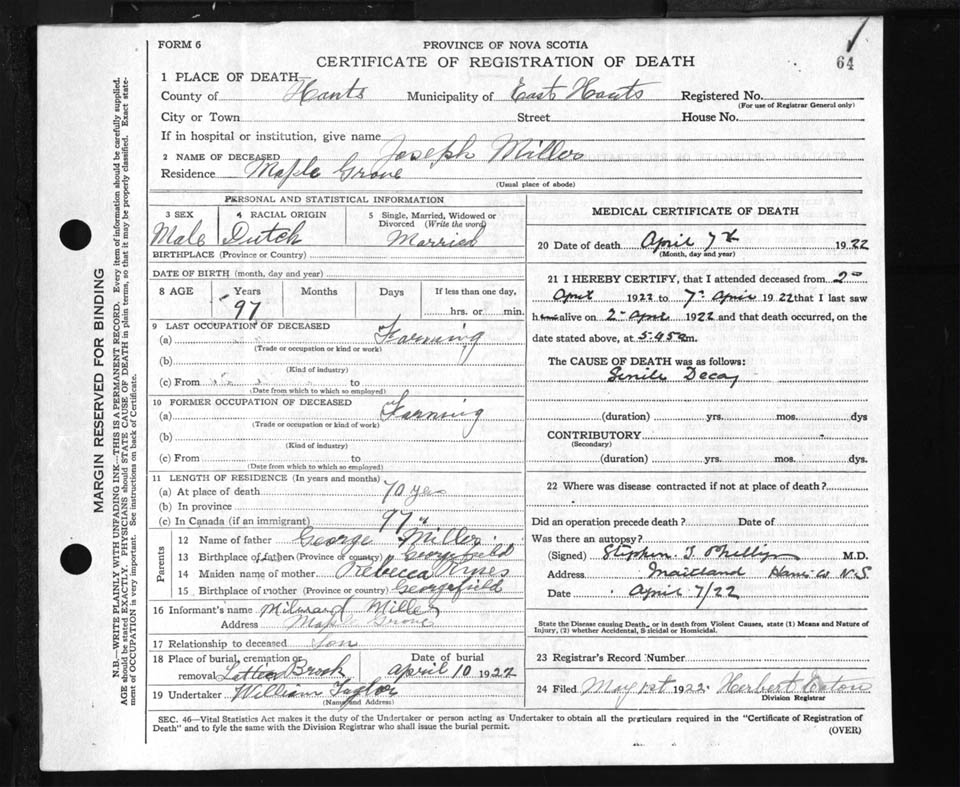 FORM 6
PROVINCE OF NOVA SCOTIA
64
CERTIFICATE OF REGISTRATION OF DEATH
MARGIN RESERVED FOR BINDING
N.B.—WRITE PLAINLY WITH UNFADING INK—THIS IS A PERMANENT RECORD. Every item of information should be carefully supplied.
AGE should be stated EXACTLY. PHYSICIANS should STATE CAUSE OF DEATH in plain terms, so that it may be properly classified. Exact state-
ment of OCCUPATION is very important. See instructions on back of Certificate.
1 PLACE OF DEATH—
County of Hants Municipality of East Hants Registered No.
(For use of Registrar General only)
City or Town Street House No.
If in hospital or institution, give name
2 NAME OF DECEASED Joseph Miller
Residence Maple Grove
(Usual place of abode)
PERSONAL AND STATISTICAL INFORMATION
3 SEX 4 RACIAL ORIGIN 5 Single, Married, Widowed or
Divorced (Write the word)
Male Dutch Married
BIRTHPLACE (Province or Country)
DATE OF BIRTH (month, day and year)
8 AGE Years Months Days If less than one day,
97 hrs. or min.
9 LAST OCCUPATION OF DECEASED
(a) Farming
(Trade or occupation or kind or work)
(b)
(Kind of industry)
(c) From to
(Date from which to which so employed)
10 FORMER OCCUPATION OF DECEASED
(a) Farming
(Trade or occupation or kind of work)
(b)
(Kind of industry)
(c) From to
(Date from which to which so employed)
11 LENGTH OF RESIDENCE (In years and months)
(a) At place of death 70 yrs
(b) In province
(c) In Canada (if an immigrant) 97 "
Parents
12 Name of father George Miller
13 Birthplace of father (Province or country) Georgefield
14 Maiden name of mother Rebecca
15 Birthplace of mother (Province or country) Georgefield
16 Informant's name Milward Miller
Address Maple Grove
17 Relationship to deceased Son
18 Place of burial, cremation or Date of burial
removal Brook April 10 1922
19 Undertaker William Taylor
(Name and Address)
MEDICAL CERTIFICATE OF DEATH
20 Date of death April 7th 1922
(Month, day and year)
21 I HEREBY CERTIFY, that I attended deceased from 2nd
April 1922 to 7th April 1922 that I last saw
him alive on 2nd April 1922 and that death occurred, on
date stated above, at m.
The CAUSE OF DEATH was as follows:
Senile Decay
(duration) yrs. mos. dys
CONTRIBUTORY
(Secondary)
(duration) yrs. mos. dys.
22 Where was disease contracted if not at place of death?
Did an operation precede death? Date of
Was there an autopsy?
(Signed) Stephen T Phillips M.D.
Address Maitland Hants Co N.S.
Date April 7/22
State the Disease causing Death, or in death from Violent Causes, state (1) Means and Nature of
Injury, (2) whether Accidental, Suicidal or Homicidal.
23 Registrar's Record Number
24 Filed May 1st 1922 Herbert Eaton
Division Registrar
SEC. 46—Vital Statistics Act makes it the duty of the Undertaker or person acting as Undertaker to obtain all the particulars required in the "Certificate of Registration of
Death" and to fyle the same with the Division Registrar who shall issue the burial permit.
(OVER)